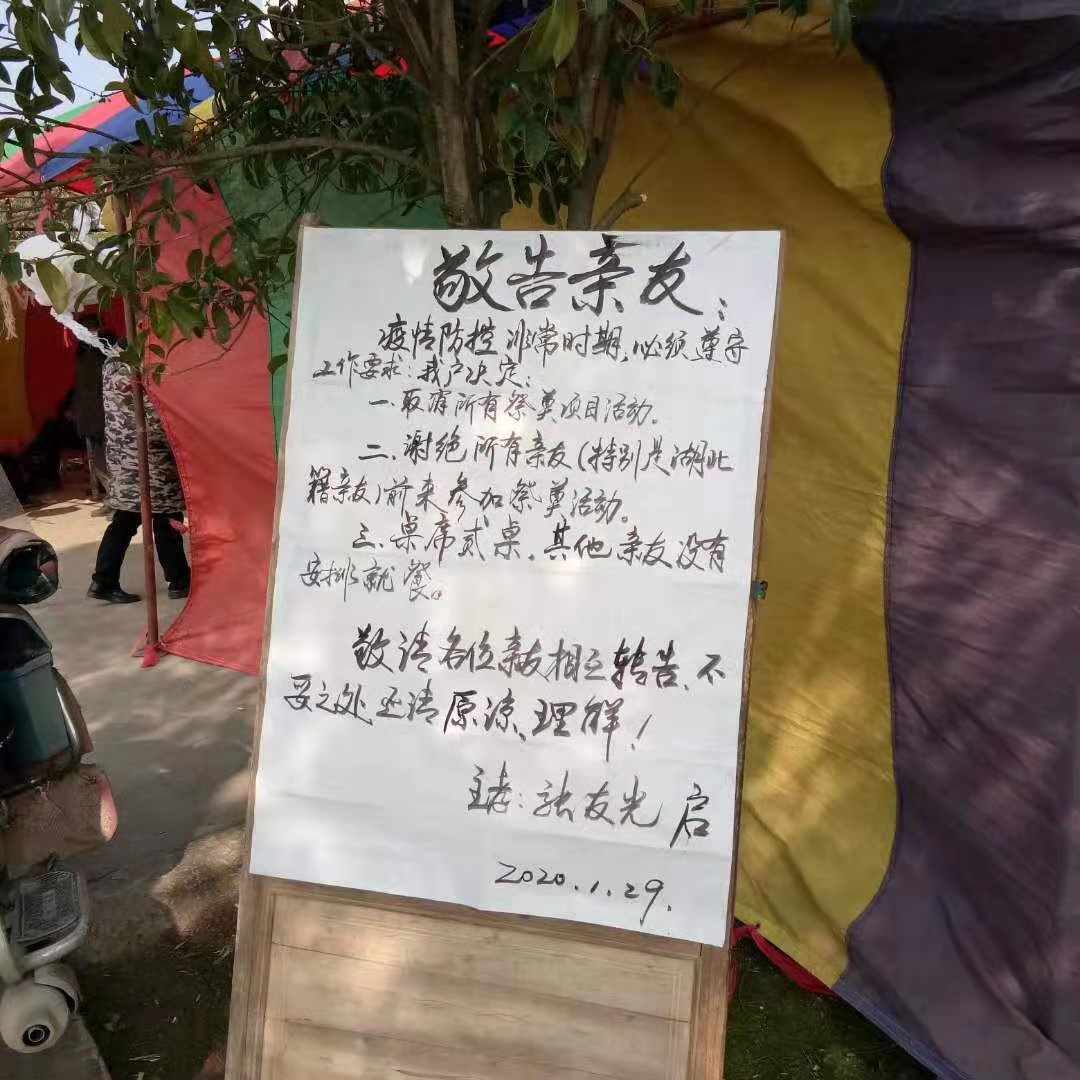 敬告亲友:
疫情防控非常时期,必须遵守
工作要求:我户决定:
一.取消所有祭奠项目活动。
二.谢绝所有亲友(特别是湖北
籍亲友)前来参加祭奠活动。
三.桌席贰桌.其他亲友没有
安排就餐。
敬请各位亲友相互转告、不
妥之处还请原谅、理解!
主孝:张友光 启
2020.1.29.